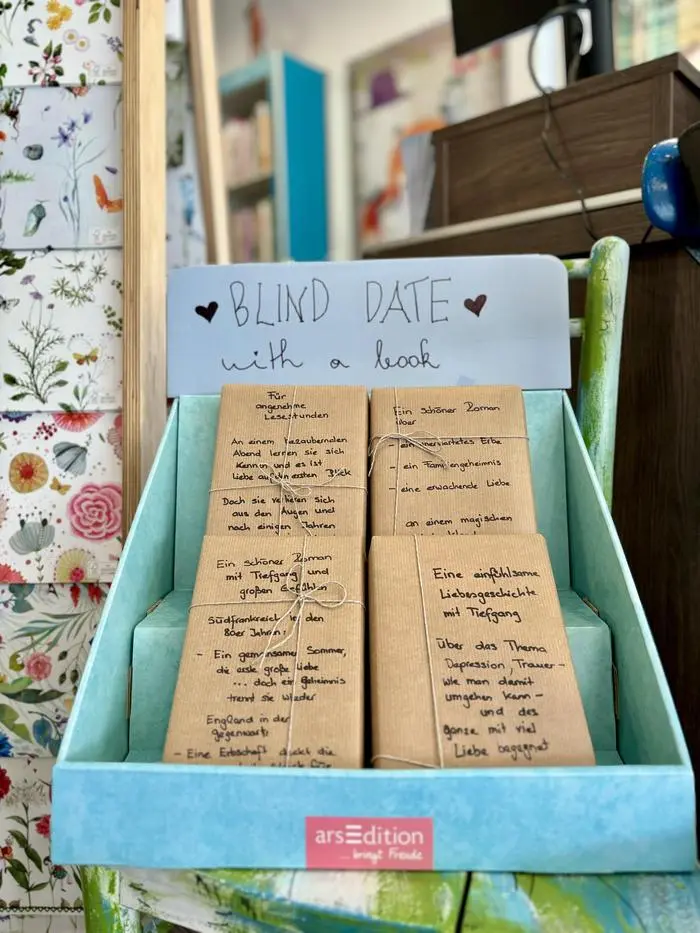 BLIND DATE
with a book
Für
angenehme
Lesestunden
An einem bezaubernden
Abend lernen sie sich
kennen und es ist
Liebe auf den ersten Blick
Doch sie verlieren sich
aus den Augen und
nach einigen Jahren
Ein schöner Roman
über
- ein unerwartetes Erbe
- ein Familiengeheimnis
- eine erwachende Liebe
an einem magischen
Ein schöner Roman
mit Tiefgang und
großen Gefühlen
Südfrankreich in den
80er Jahren:
- Ein gemeinsamer Sommer,
die erste große Liebe
... doch ein Geheimnis
trennt sie wieder
England in der
Gegenwart:
- Eine Erbschaft deckt die
für
Eine einfühlsame
Liebesgeschichte
mit Tiefgang
Über das Thema
Depression, Trauer -
wie man damit
umgehen kann -
und des
ganze mit viel
Liebe begegnet
arsEdition
... bringt Freude